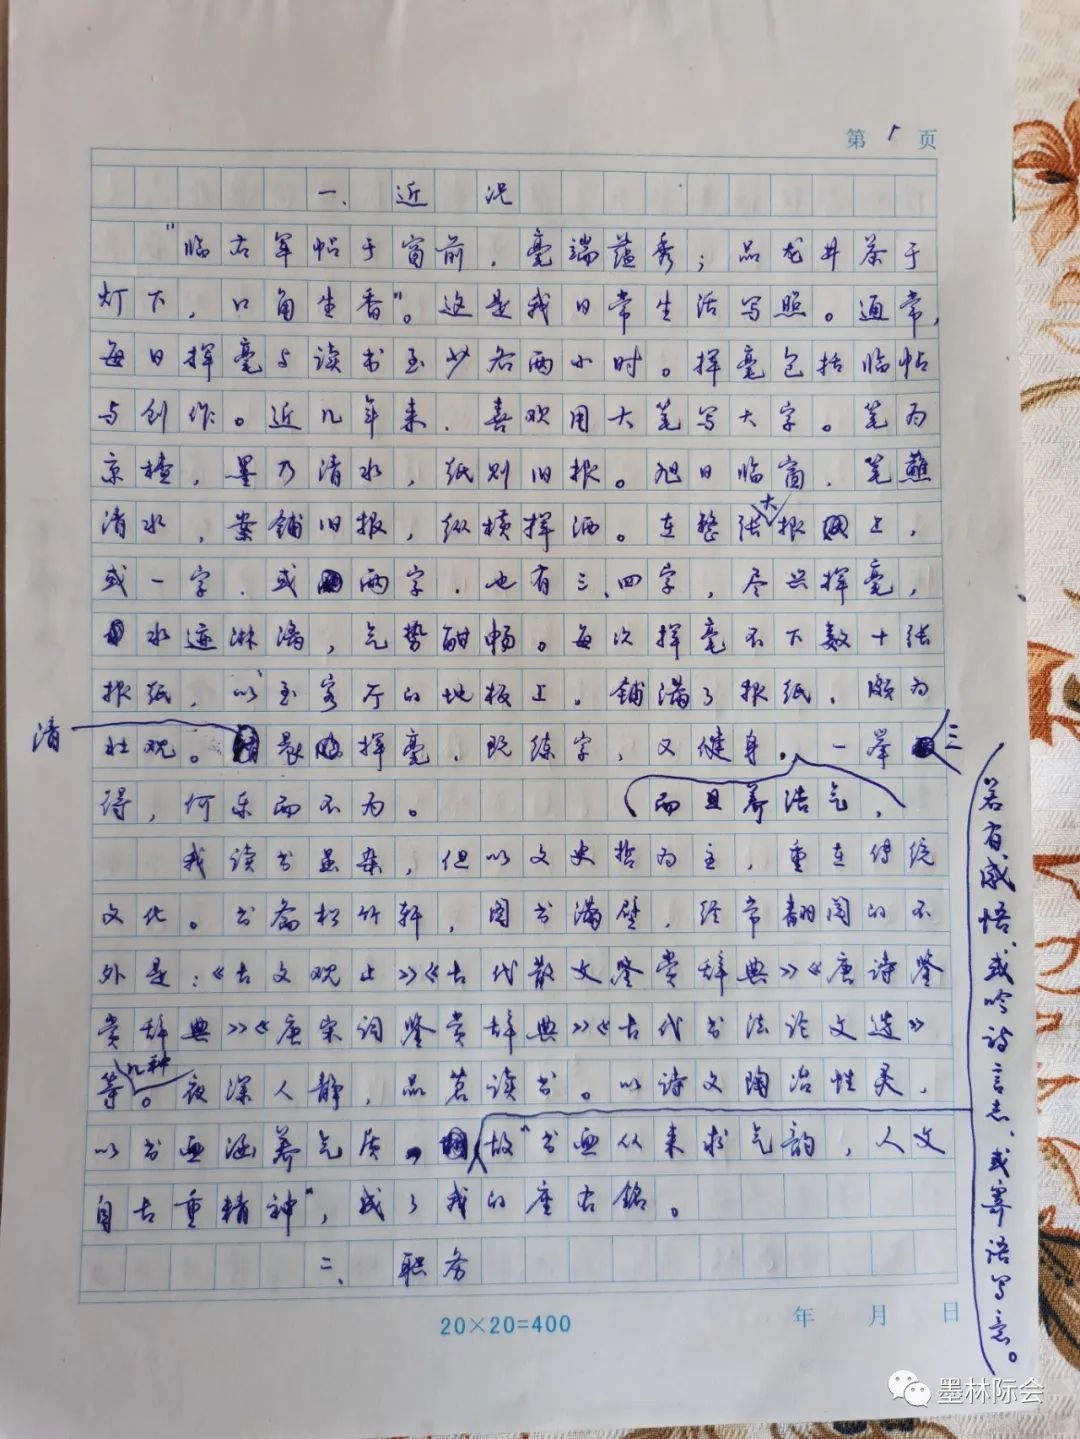 第 1 页
一、近况
“临右军帖于窗前，毫端蕴秀；品龙井茶于
灯下，口角生香”。这是我日常生活写照。通常，
每日挥毫与读书至少各两小时。挥毫包括临帖
与创作。近几年来，喜欢用大笔写大字。笔为
京楂，墨乃清水，纸则旧报。旭日临窗，笔蘸
清水，案铺旧报，纵横挥洒。在整张大报上，
或一字，或两字，也有三、四字，尽兴挥毫，
水迹淋漓，气势酣畅。每次挥毫不下数十张
报纸，以至客厅的地板上，铺满了报纸，颇为
壮观。清晨挥毫，既练字，又健身，一举三
得，何乐而不为。
而且养浩气，
我读书虽杂，但以文史哲为主，重在传统
文化。书斋松竹轩，图书满壁，经常翻阅的不
外是：《古文观止》《古代散文鉴赏辞典》《唐诗鉴
赏辞典》《唐宋词鉴赏辞典》《古代书法论文选》
等几种。夜深人静，品茗读书。以诗文陶冶性灵，
以书画涵养气质。故“书画从来求气韵，人文
自古重精神”，成了我的座右銘。
若有感悟，或吟诗言志，或寄语写意。
二、职务
20×20=400
年 月 日
墨林际会